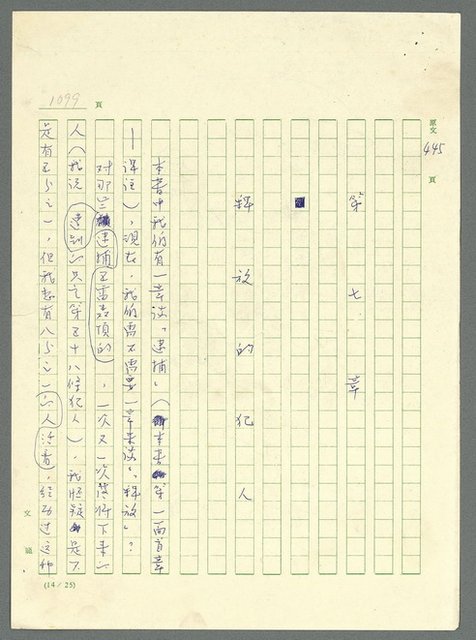 1099 頁
原文 445 頁
第七章
釋放的犯人
本書中我們有一章談「逮捕」(本書第一首章
—譯注),現在,我們需不需要一章來談「釋放」?
對那些逮捕五雷轟頂的,一次又一次落將下來的
人(我說遭到的只是第五十八條犯人),我懷疑是不
是有五分之一,但我想有八分之一的人活着,經歷過這種
文
(14/25)